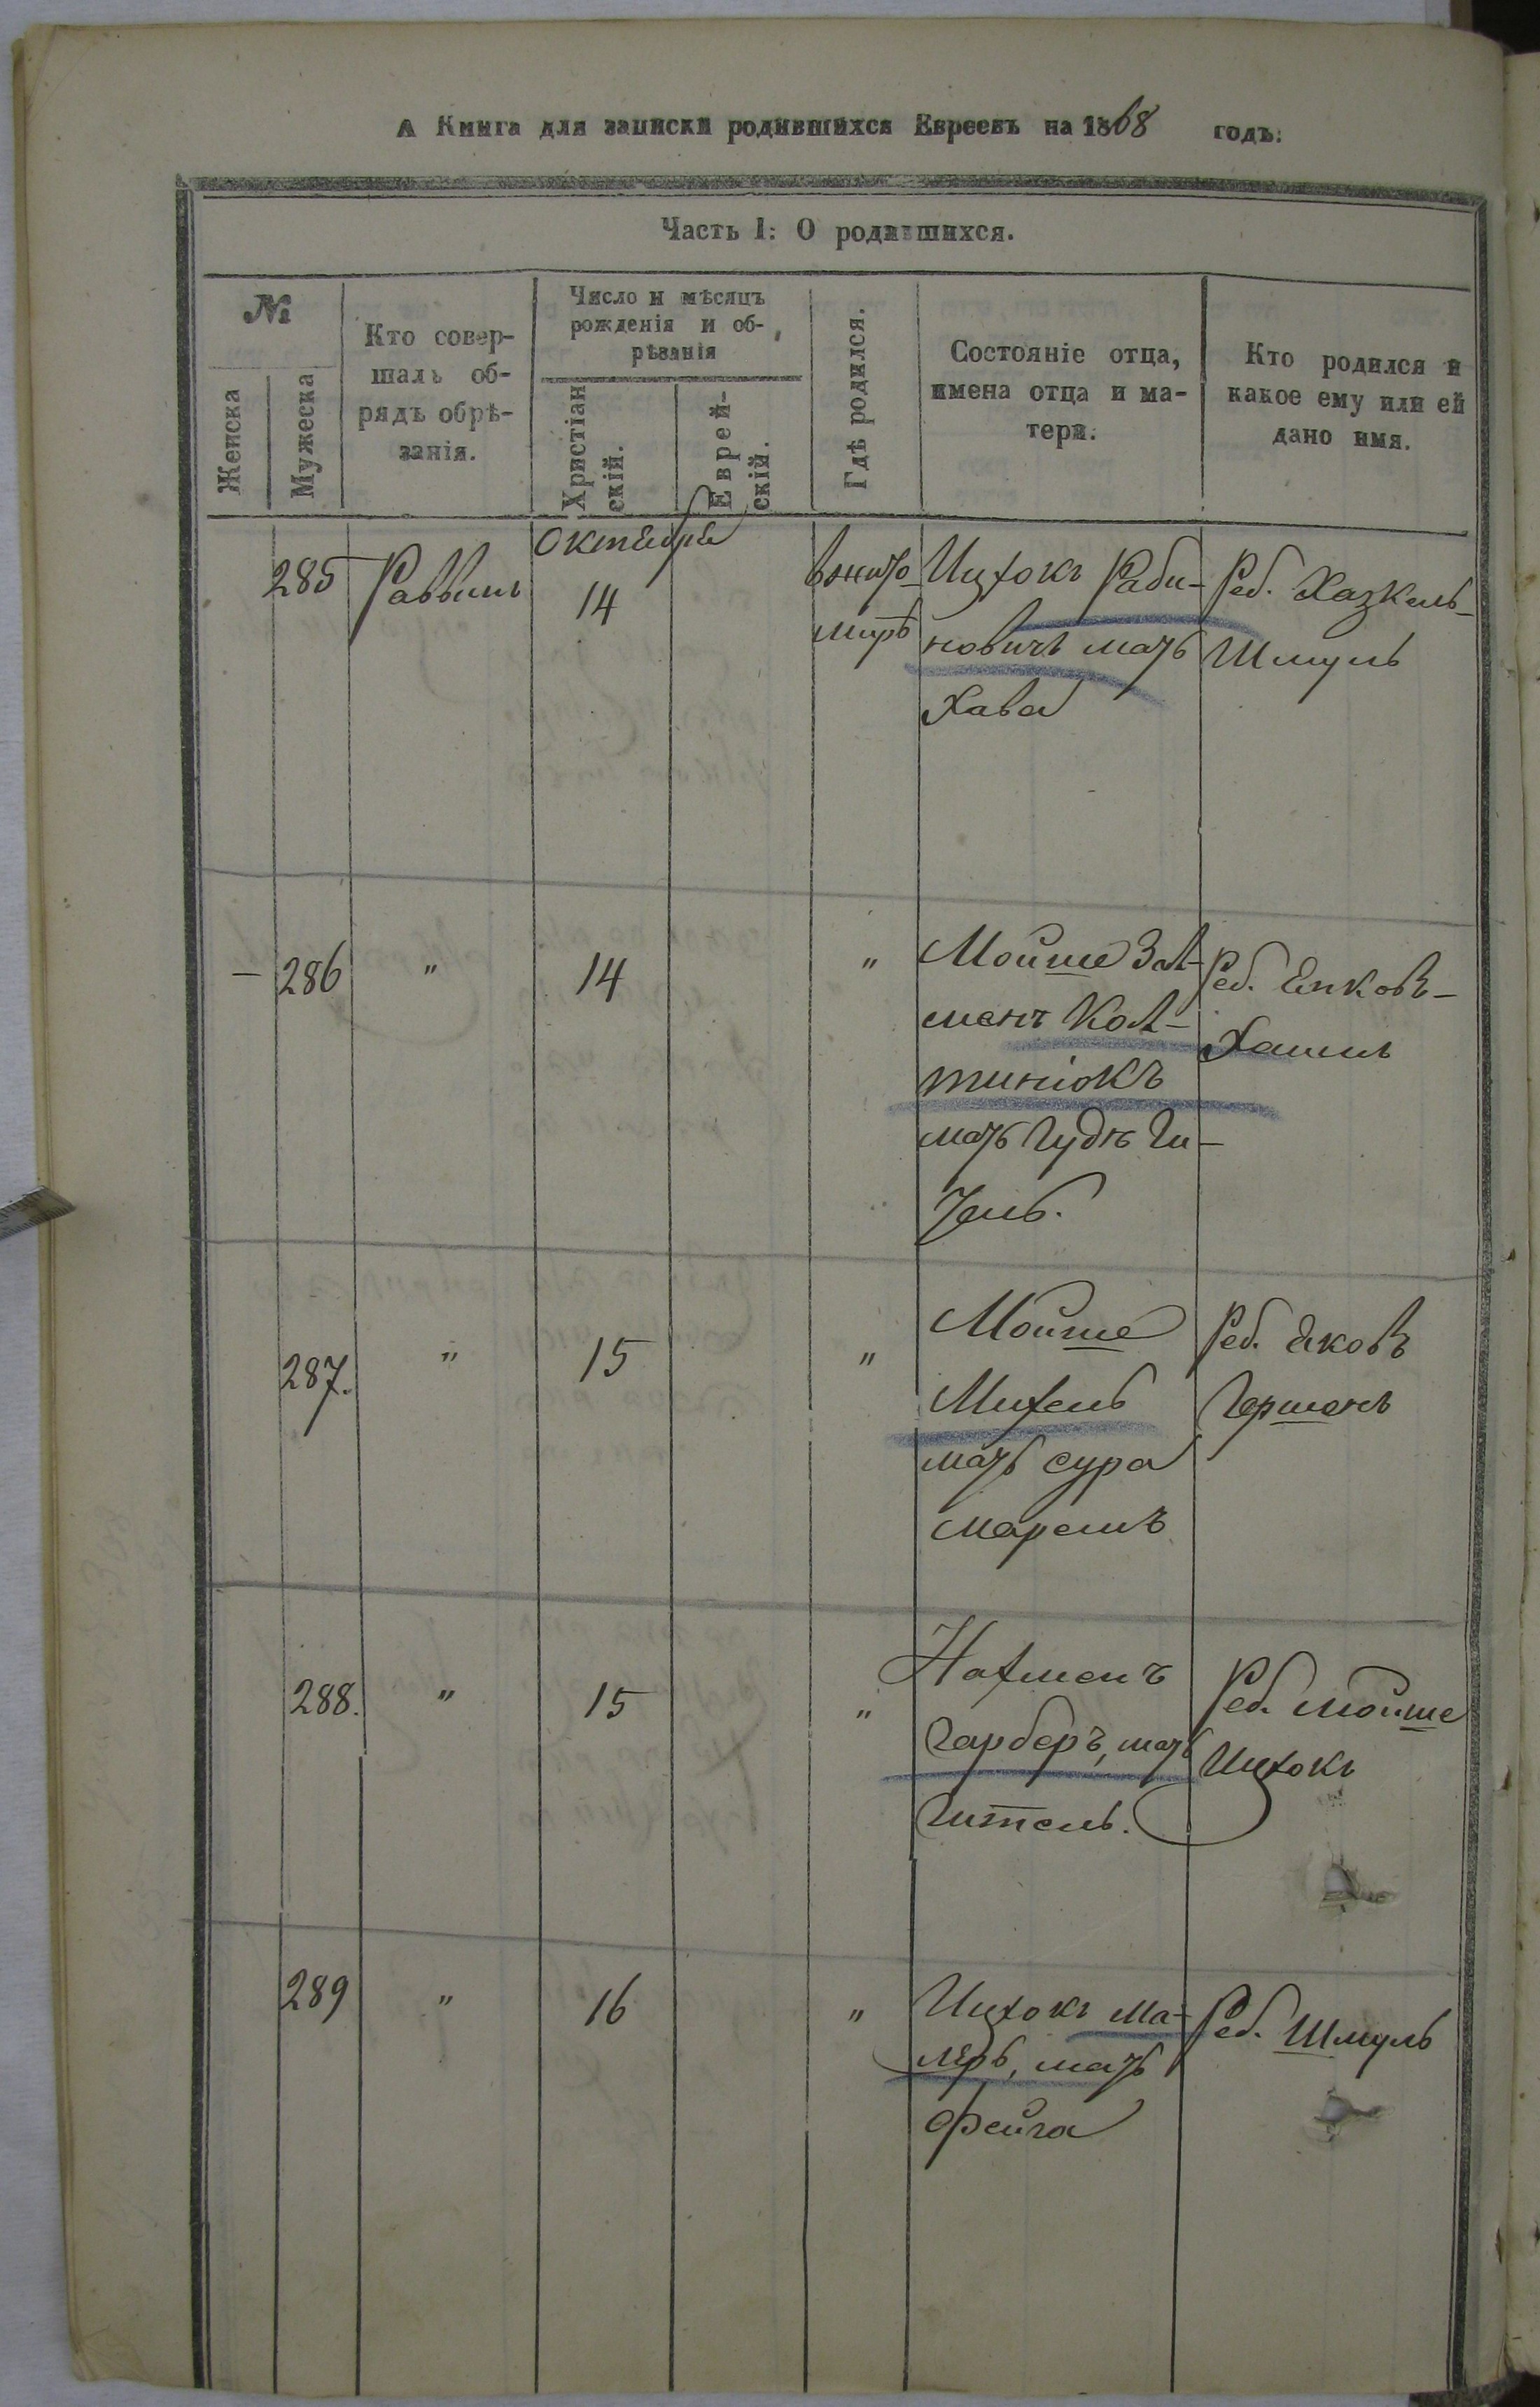 А Книга для записки родившихся Евреевъ на 1868 годъ:
Часть 1: О родившихся.
№
Женска
Мужеска
Кто совер-
шалъ об-
рядъ обрѣ-
занія.
Число и мѣсяцъ
рожденія и об-
рѣзанія
Христіан
скій.
Еврей-
скій.
Гдѣ родился.
Состояніе отца,
имена отца и ма-
тери.
Кто родился и
какое ему или ей
дано имя.
Октября
285 Раввинъ 14
Ицхокъ Раби-
новичъ мать
Хава
Реб. Хазкель-
Шмуль
– 286 " 14 "
Мойше Зал-
менъ Кол-
тинюкъ
мать Гудъ Ги-
тель.
Реб. Янковъ-
Хаимъ
287. " 15 "
Мойше
Михель
мать сура
Реб. Яковъ
Гершонъ
288. " 15 "
Нахменъ
Гарберъ, мать
Гитель.
Реб. Мойше
Ицхокъ
289 " 16 "
Ицхокъ Ма-
леръ, мать
Фейга
Реб. Шмуль